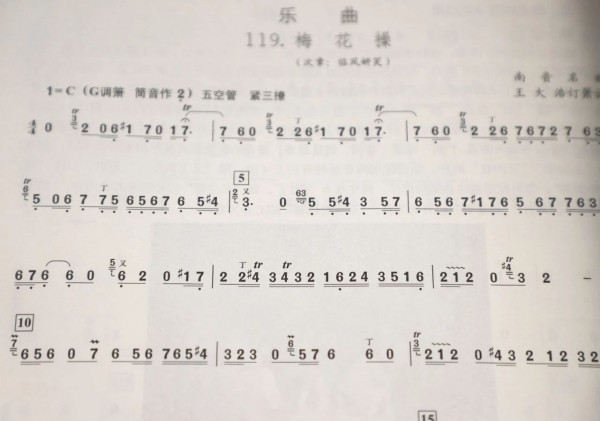 乐 曲
119. 梅 花 操
(次章: 临风妍笑)
南 音 名
1=C (G调箫 筒音作2) 五空管 紧三撩
王 大 浩订箫谱
4/4 0 2 06 #1 70 17. 7 60 2 26 #1 70 17. 7 60 2 26 7672 763
5 06 7 75 6567 6 5#4 3. 0 5 5#4 3 57 6 56 7#176 5 67 763
5
676 6 0 6 2 0 #17 2 2#4 3432 1624 3516 212 0 3 2 –
10
656 0 7 6 56 765#4 323 0 576 6 0 212 0 #43 2 12 32
15